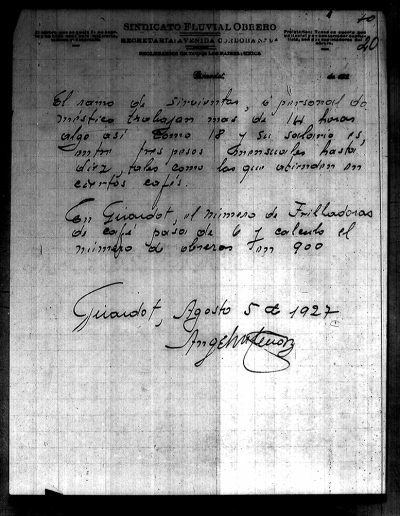 20
SINDICATO FLUVIAL OBRERO
SECRETARIA: AVENIDA
Girardot, de 192
El ramo de sirvientas, o personal do
méstico trabajan mas de 14 horas
algo así como 18 y su salario es,
entre tres pesos mensuales hasta
diez, tales como las que atienden en
ciertos cafés.
En Girardot, el número de Trilladoras
de café pasa de 6 y calculo el
número de obreros en 900
Girardot, Agosto 5 de 1927